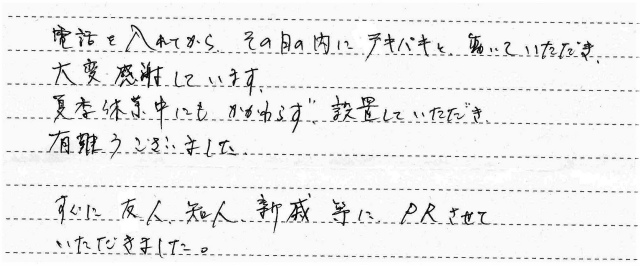 電話を入れてから その日の内に テキパキと 動いていただき、
大変感謝しています。
夏季休業中にも かかわらず 設置していただき
有難うございました。
すぐに 友人、知人、親戚 等に PRさせて
いただきました。